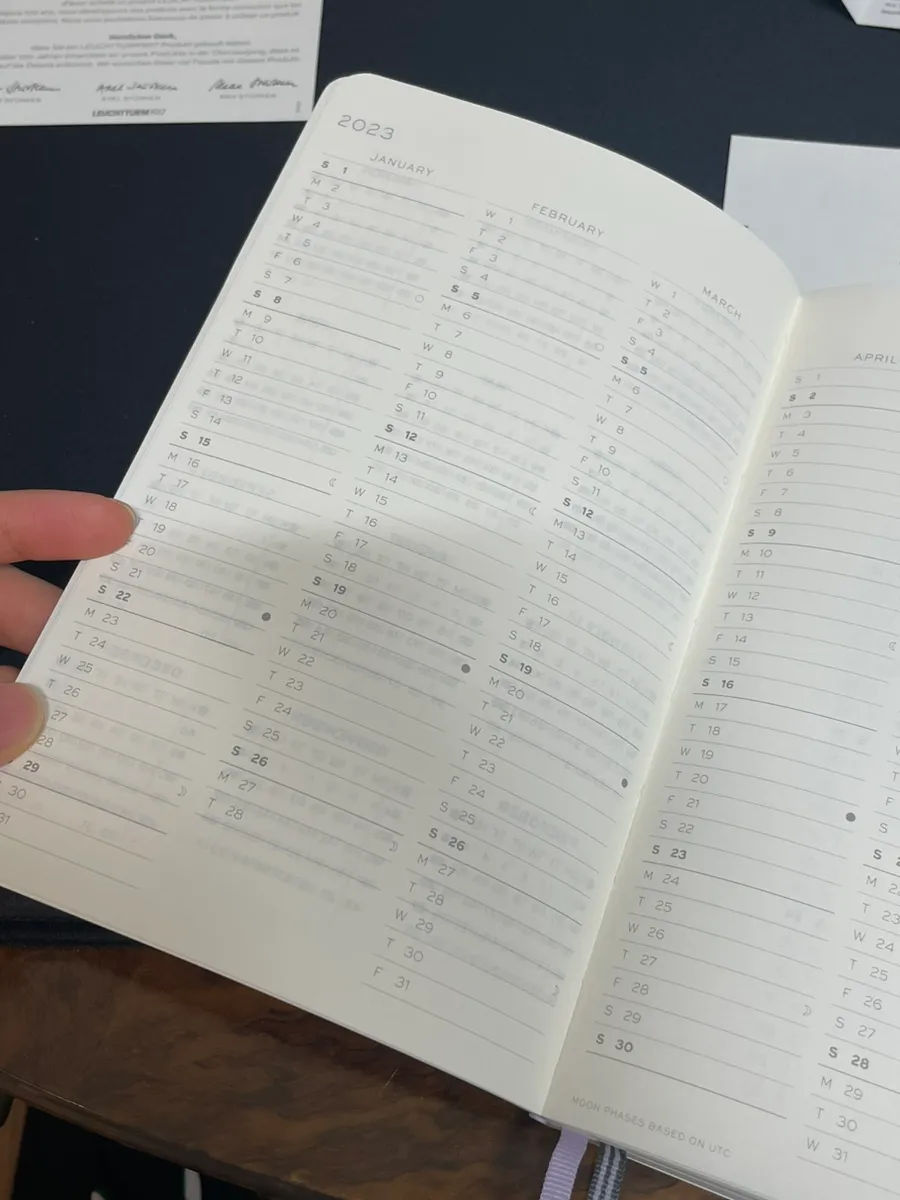 Herzlichen Dank,
dass Sie ein LEUCHTTURM1917 Produkt gekauft haben.
AXEL STURKEN
MAX STURKEN
LEUCHTTURM1917
2023
JANUARY
S 1
M 2
T 3
W 4
T 5
F 6
S 7
S 8
M 9
T 10
W 11
T 12
F 13
S 14
S 15
M 16
T 17
W 18
T 19
20
S 21
S 22
M 23
T 24
W 25
T 26
27
28
29
30
31
FEBRUARY
W 1
T 2
F 3
S 4
S 5
M 6
T 7
W 8
T 9
F 10
S 11
S 12
M 13
T 14
W 15
T 16
F 17
S 18
S 19
M 20
T 21
W 22
T 23
F 24
S 25
S 26
M 27
T 28
MARCH
W 1
T 2
F 3
S 4
S 5
M 6
T 7
W 8
T 9
F 10
S 11
S 12
M 13
T 14
W 15
T 16
F 17
S 18
S 19
M 20
T 21
W 22
T 23
F 24
S 25
S 26
M 27
T 28
W 29
T 30
F 31
APRIL
S 1
S 2
M 3
T 4
W 5
T 6
F 7
S 8
S 9
M 10
T 11
W 12
T 13
F 14
S 15
S 16
M 17
T 18
W 19
T 20
F 21
S 22
S 23
M 24
T 25
W 26
T 27
F 28
S 29
S 30
MOON PHASES BASED ON UTC
W
T
F
S
S 2
M 22
T 23
W 24
T 25
F 26
S 27
S 28
M 29
T 30
W 31